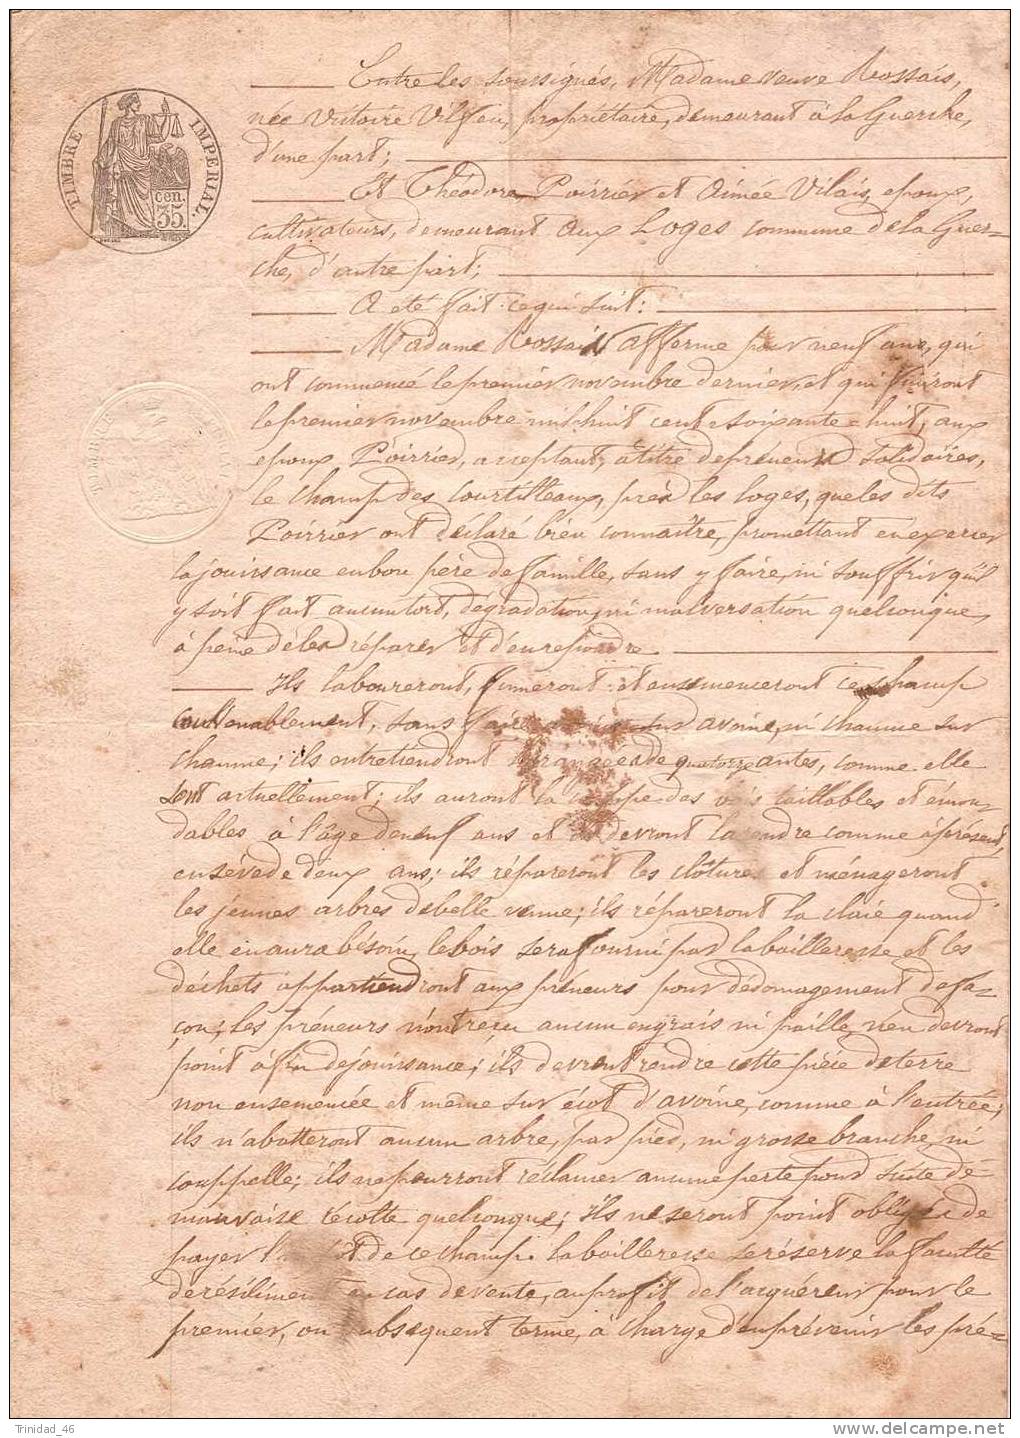 TIMBRE IMPERIAL.
cen.
35.
Entre les soussignés, Madame veuve Rossais,
née Victoire Vilfeu, propriétaire, demeurant à la Guerche,
d'une part;
Et Théodore Poirrier et Aimée Vilais, epoux,
cultivateurs, demeurant aux Loges commune de la Guer-
che, d'autre part;
A eté fait ce qui suit:
Madame Rossais afferme pour neuf ans, qui
ont commencé le premier novembre dernier, et qui finiront
le premier novembre mil huit cent soixante-huit, aux
epoux Poirrier, acceptant, à titre de preneurs solidaires,
le champ des Courtilleaux, près les Loges, que les dits
Poirrier ont déclaré bien connaître, promettant en exercer
la jouissance en bon père de famille, sans y faire, ni souffrir qu'il
y soit fait aucun tort, dégradation, ni malversation quelconque,
à peine de les réparer et d'en repondre.
Ils laboureront, fumeront et ensemenceront ce champ
convenablement, sans faire sur avoine, ni chaume sur
chaume; ils entretiendront rangées de quatorze antes, comme elle
sont actuellement; ils auront la coupe des bois taillables et émon-
dables à l'âge de neuf ans et devront la rendre comme à présent,
en sève de deux ans; ils répareront les clôtures et ménageront
les jeunes arbres de belle venue; ils répareront la claie quand
elle en aura bésoin, le bois sera fourni par la bailleresse et les
déchets appartiendront aux préneurs pour dédomagement de fa-
çon; les préneurs n'ont reçu aucun engrais ni paille, n'en devront
point à fin de jouissance; ils devront rendre cette pièce de terre
non ensemencée et même sur écot d'avoine, comme à l'entrée;
ils n'abatteront aucun arbre, par pied, ni grosse branche, ni
couppelle; ils ne pourront réclamer aucune perte pour suite de
mauvaise récolte quelconque; Ils ne seront point obligés de
payer l' de ce champ. la bailleresse se réserve la faculté
de résiliment en cas de vente, au profit de l'acquéreur pour le
premier, ou subsequent terme, à charge d'en prévenir les pré-
Trinidad_46
www.delcampe.net